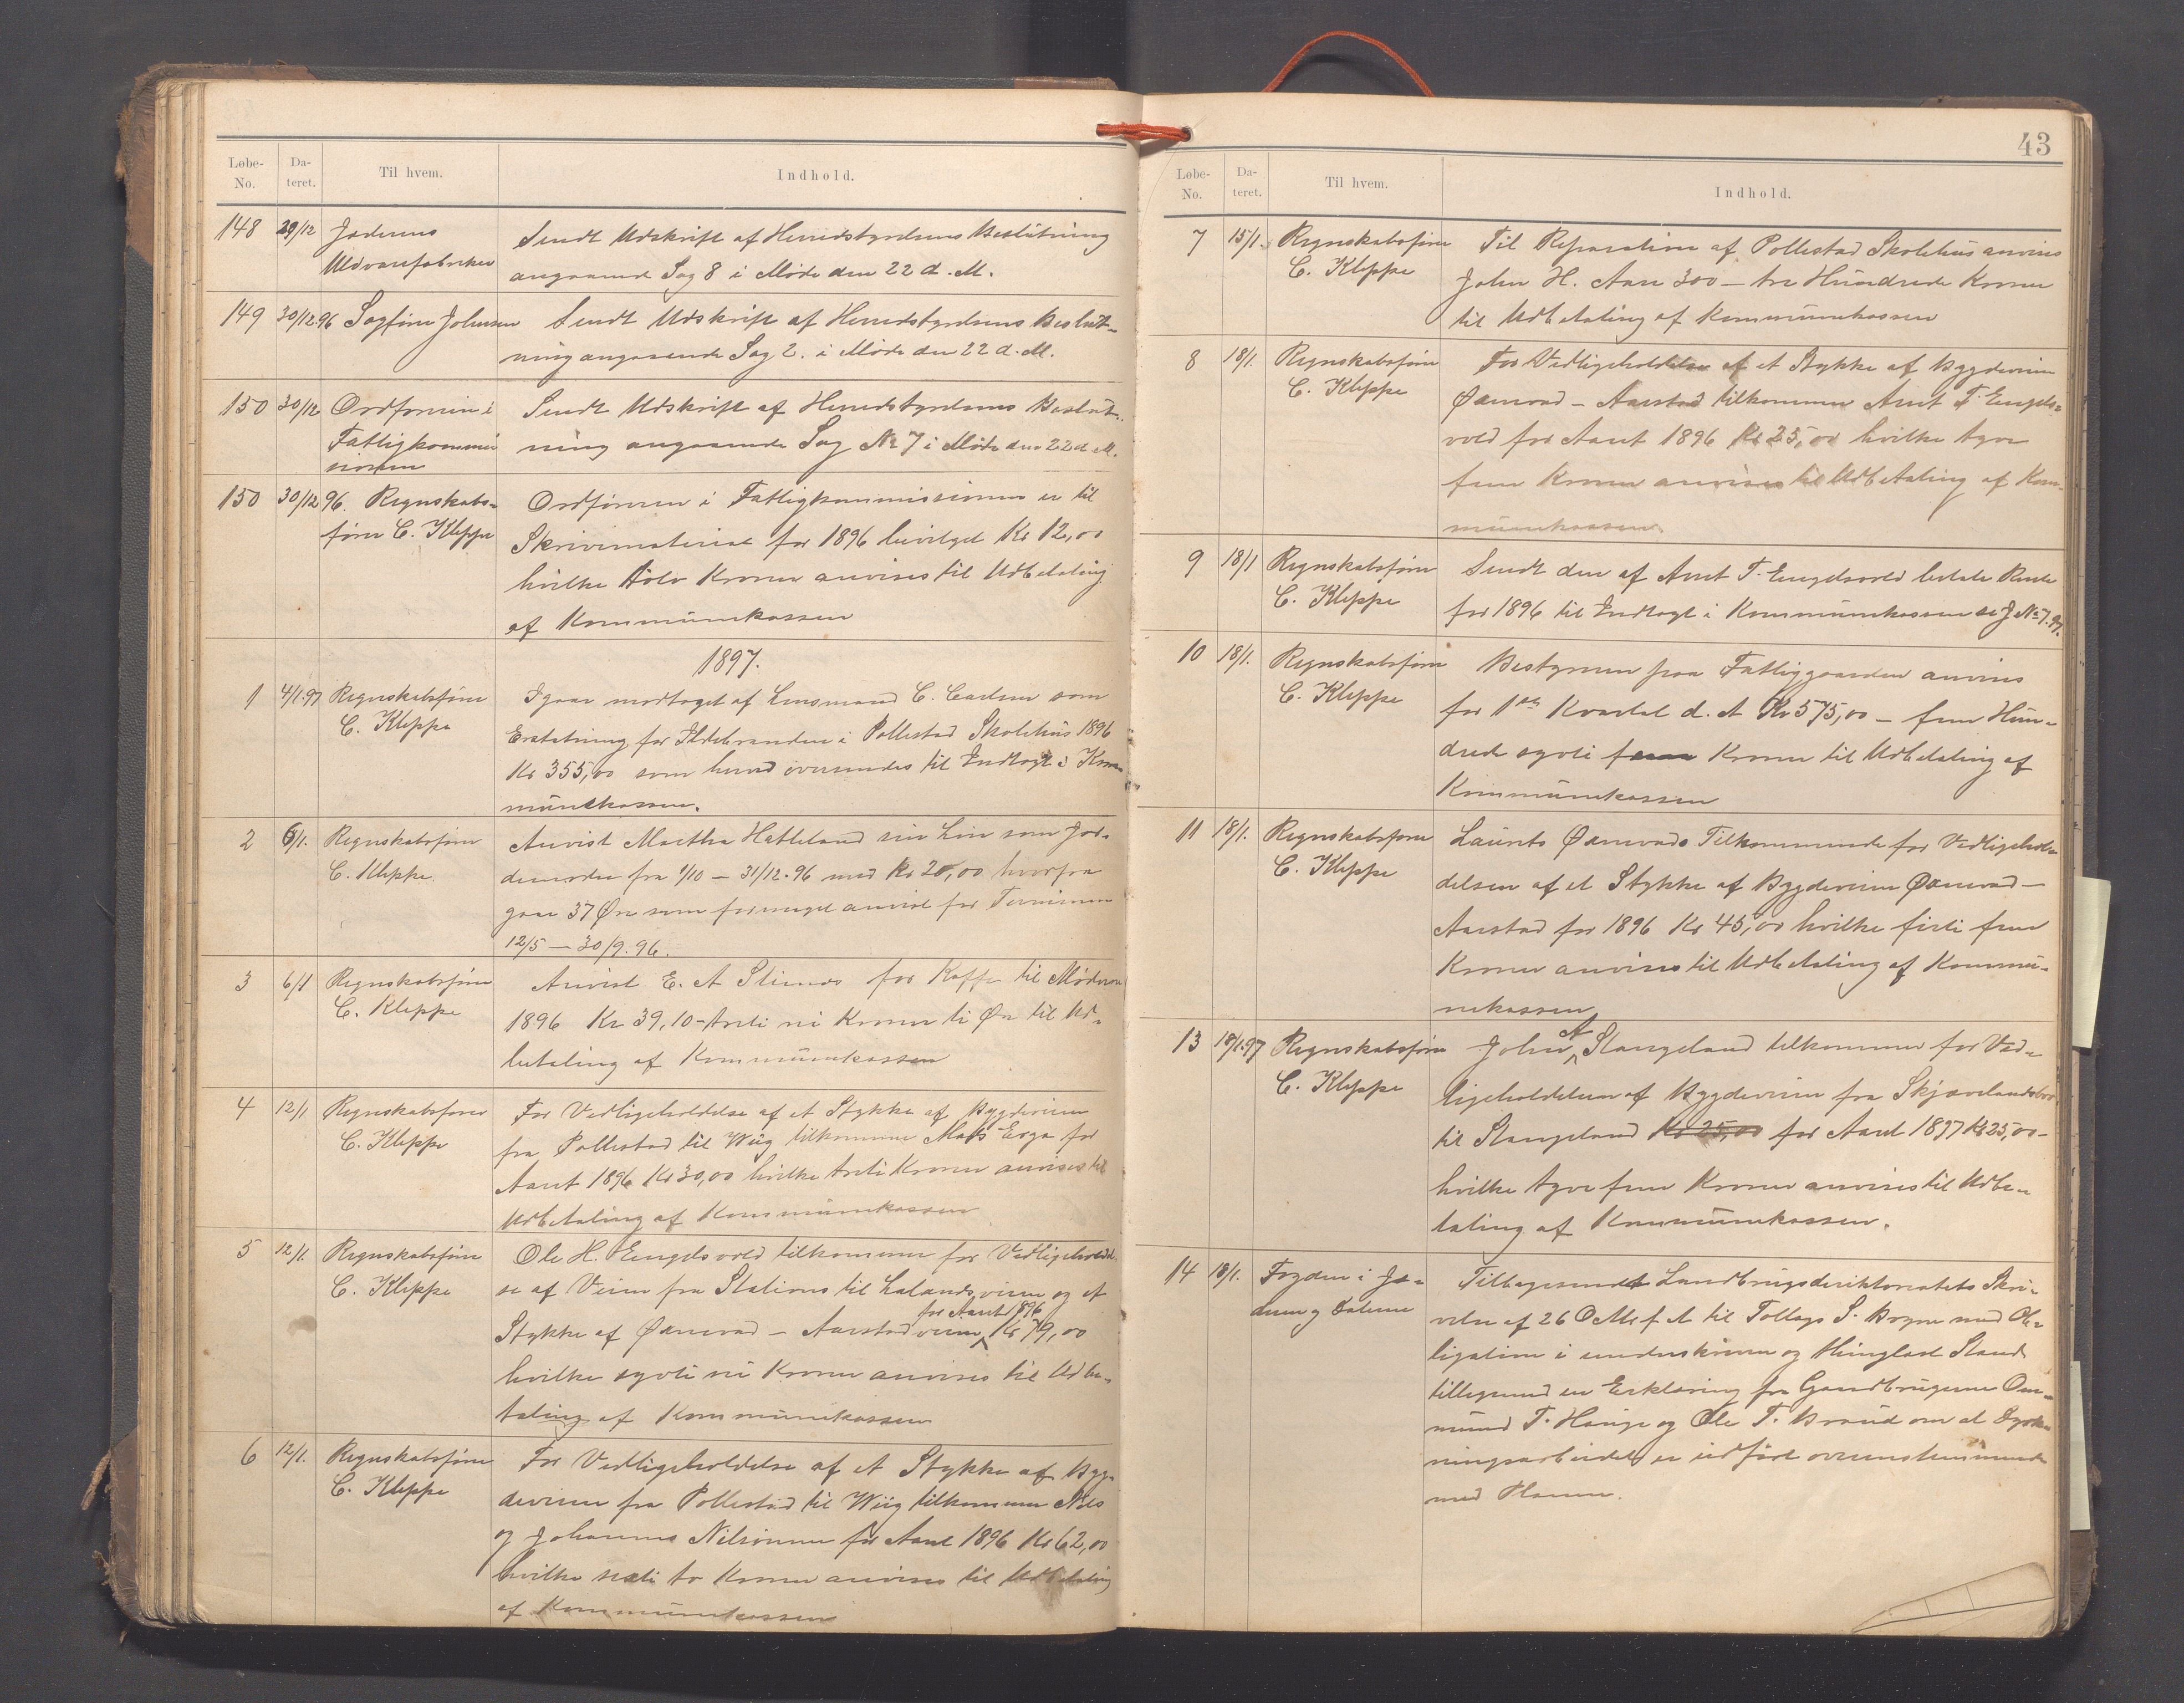 Løbe-No. Da-teret. Til hvem. Indhold.
148 29/12 Jæderens Sendt Udskrift af Herredstyrelsens Beslutning
Uldvarefabriker angaaende Sag 8 i Møde den 22 d. M.
149 30/12 96 Sagfører Johnsen Sendt Udskrift af Herredstyrelsens Beslut-
ning angaaende Sag 2. i Møde den 22 d. M.
150 30/12 Ordføreren i Sendt Udskrift af Herredstyrelsens Beslut-
Fattigkommis ning angaaende Sag № 7 i Møde den 22 d. M.
sionen
150 30/12 96. Regnskabs- Ordføreren i Fattigkommissionen er til
fører C. Kleppe Skrivemateriel for 1896 bevilget Kr 12,00
hvilke tolv Kroner anvises til Udbetaling
af Kommunekassen
1897.
1 4/1.97 Regnskabsfører Igaar modtaget af Lensmand C. Carlsen som
C. Kleppe Erstatning for Ildebranden i Pollestad Skolehus 1896
Kr 355,00 som herved oversendes til Indtægt i Kom-
munekassen.
2 6/1. Regnskabsfører Anvist Martha Hatteland sin Løn som Jor-
C. Kleppe. demoder fra 1/10 – 31/12.96 med Kr 20,00 hvorfra
gaar 37 Øre som formeget anvist for Terminen
12/5 – 30/9.96.
3 6/1 Regnskabsfører Anvist E. A Stimes for Kaffe til Møderne
C. Kleppe 1896 Kr 39,10 – treti ni Kroner ti Øre til Ud-
betaling af Kommunekassen
4 12/1 Regnskabsfører For Vedligeholdelse af et Stykke af Bygdeveien
C. Kleppe fra Pollestad til Wiig tilkommer Mats Erga for
Aaret 1896 Kr 30,00 hvilke treti Kroner anvises til
Udbetaling af Kommunekassen
5 12/1. Regnskabsfører Ole H. Engelsvold tilkommer for Vedligeholdel-
C. Kleppe se af Veien fra Stations til Lalandsveien og et
for Aaret 1896
Stykke af Øxnevad – Aarstadveien Kr 79,00
hvilke sytti ni Kroner anvises til Udbe-
taling af Kommunekassen
6 12/1. Regnskabsfører For Vedligeholdelse af et Stykke af Byg-
C. Kleppe deveien fra Pollestad til Wiig tilkommer Nils
og Johannes Nilsønner for Aaret 1896 Kr 62,00
hvilke sexti to Kroner anvises til Udbetaling
af Kommunekassen
43
Løbe-No. Da-teret. Til hvem. Indhold.
7 15/1. Regnskabsfører Til Reparation af Pollestad Skolehus anvises
C. Kleppe John H. Aase 300 – tre Hundrede Kroner
til Udbetaling af Kommunekassen
8 18/1. Regnskabsfører For Vedligeholdelse af et Stykke af Bygdeveien
C. Kleppe Øxnevad – Aarstad tilkommer Arnt T. Engels-
vold for Aaret 1896 Kr 25,00 hvilke tyve
fem Kroner anvises til Udbetaling af Kom-
munekassen
9 18/1 Regnskabsfører Sendt den af Arnt T. Engelsvold betalte Rente
C. Kleppe for 1896 til Indtægt i Kommunekassen se J № 7.97.
10 18/1. Regnskabsfører Bestyreren paa Fattiggaarden anvises
C. Kleppe for 1ste Kvartal d. A Kr 575,00 – fem Hun-
drede sytti fem Kroner til Udbetaling af
Kommunekassen
11 18/1. Regnskabsfører Laurits Øxnevads Tilkommende for Vedligehol-
C. Kleppe delsen af et Stykke af Bygdeveien Øxnevad –
Aarstad for 1896 Kr 45,00 hvilke firti fem
Kroner anvises til Udbetaling af Kommu-
nekassen
13 18/1.97 Regnskabsfører John A Stangeland tilkommer for Ved-
C. Kleppe ligeholdelsen af Bygdeveien fra Skjævelandsbro
til Stangeland Kr 25,00 for Aaret 1897 Kr 25,00 –
hvilke tyve fem Kroner anvises til Udbe-
taling af Kommunekassen.
14 18/1. Fogden i Jæ- Tilbagesendt Landbrugsdirektoratets Skri-
deren og Dalerne velse af 26 Okt f A til Tollags S. Bryne med Ob-
ligation i underskreven og thinglæst Stand
tilligemed en Erklæring fra Gaardbrugerne Om-
mund T. Hauge og Ole T. Braud om at Dyrk-
ningsarbeidet er udført overensstemmende
med Planen.